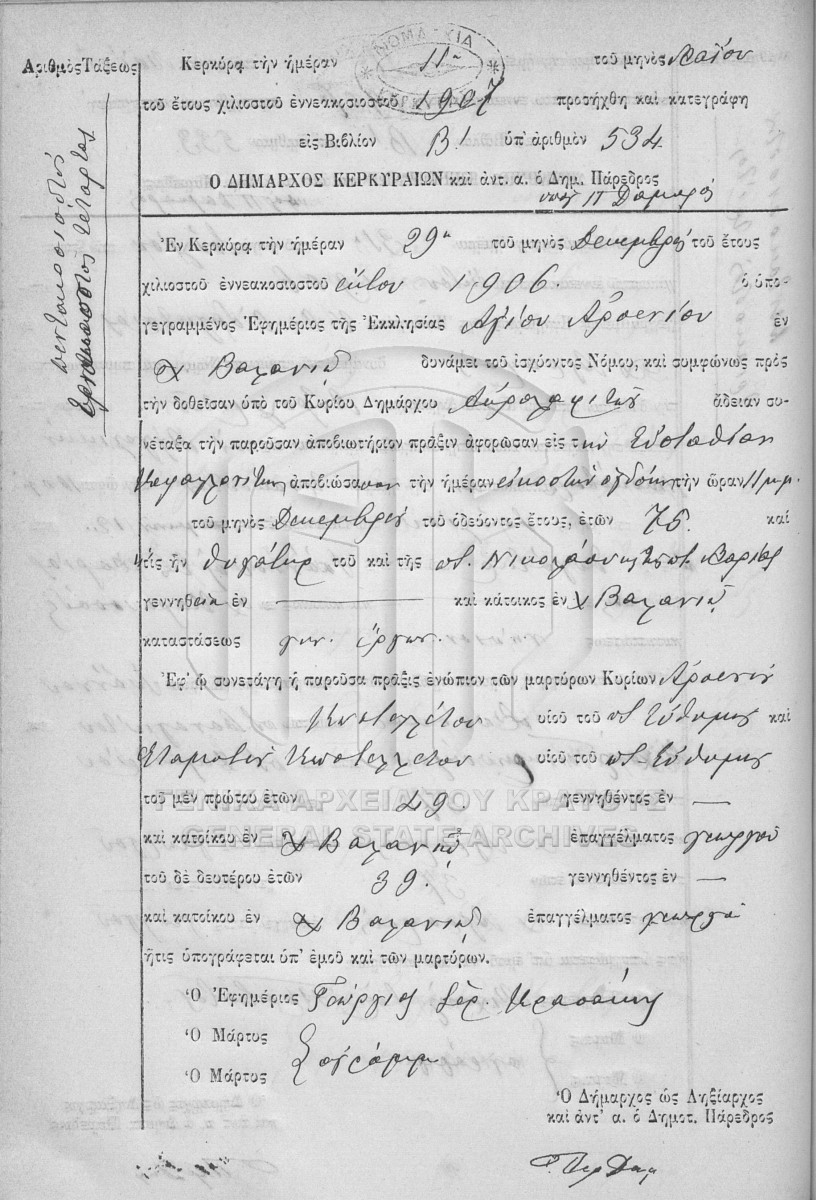 ΝΟΜΑΡΧΙΑ
Ἀριθμὸς Τάξεως
πεντακοσιοστὸς
τέταρτος
Κερκύρᾳ τὴν ἡμέραν 11 τοῦ μηνὸς Μαΐου
τοῦ ἔτους χιλιοστοῦ ἐννεακοσιοστοῦ 1907 προσήχθη καὶ κατεγράφη
εἰς Βιβλίον Β! ὑπ' ἀριθμὸν 534
Ο ΔΗΜΑΡΧΟΣ ΚΕΡΚΥΡΑΙΩΝ καὶ ἀντ. α. ὁ Δημ. Πάρεδρος
Ἐν Κερκύρᾳ τὴν ἡμέραν 29η τοῦ μηνὸς Δεκεμβρίου τοῦ ἔτους
χιλιοστοῦ ἐννεακοσιοστοῦ ἕκτου 1906. ὁ ὑπο-
γεγραμμένος Ἐφημέριος τῆς Ἐκκλησίας Ἁγίου Ἀρσενίου ἐν
χ Βαλανιῷ δυνάμει τοῦ ἰσχύοντος Νόμου, καὶ συμφώνως πρὸς
τὴν δοθεῖσαν ὑπὸ τοῦ Κυρίου Δημάρχου ἄδειαν συ-
νέταξα τὴν παροῦσαν ἀποβιωτήριον πρᾶξιν ἀφορῶσαν εἰς τὴν Εὐσταθίαν
Κεφαλλονίτου ἀποβιώσασαν τὴν ἡμέραν εἰκοστὴν ὀγδόην τὴν ὥραν 11 μ.μ.
τοῦ μηνὸς Δεκεμβρίου τοῦ ὁδεύοντος ἔτους, ἐτῶν 75. καὶ
ἥτις ἦν θυγάτηρ τοῦ καὶ τῆς ποτ. Νικολάου καὶ τῆς ποτ. Μαρίας
γεννηθεῖσα ἐν — καὶ κάτοικος ἐν χ Βαλανιῷ
καταστάσεως
Ἐφ' ᾧ συνετάγη ἡ παροῦσα πρᾶξις ἐνώπιον τῶν μαρτύρων Κυρίων Ἀρσενίου
Κποτελλέτου υἱοῦ τοῦ ποτ Εὐθυμίου καὶ
Σταματίου Κποτελλέτου υἱοῦ τοῦ ποτ Εὐθυμίου
τοῦ μὲν πρώτου ἐτῶν 49. γεννηθέντος ἐν —
καὶ κατοίκου ἐν χ Βαλανιῷ ἐπαγγέλματος γεωργοῦ
τοῦ δὲ δευτέρου ἐτῶν 39. γεννηθέντος ἐν —
καὶ κατοίκου ἐν χ Βαλανιῷ ἐπαγγέλματος γεωργοῦ
ἥτις ὑπογράφεται ὑπ' ἐμοῦ καὶ τῶν μαρτύρων.
Ὁ Ἐφημέριος Γεώργιος Ἱερ.
Ὁ Μάρτυς
Ὁ Μάρτυς
Ὁ Δήμαρχος ὡς Ληξίαρχος
καὶ ἀντ' α. ὁ Δημοτ. Πάρεδρος
ΓΕΝΙΚΑ ΑΡΧΕΙΑ ΤΟΥ ΚΡΑΤΟΥΣ
GENERAL STATE ARCHIVES